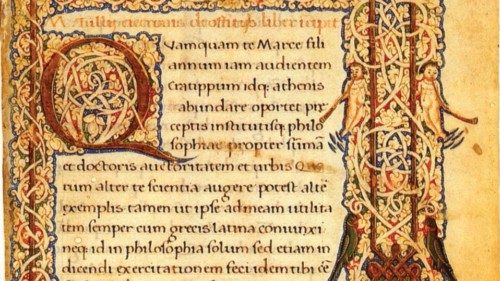 M. Tullii ciceronis de offitiis liber incipit
Quamquam te Marce fili
annum iam audientem
Cratippum idq; athenis
abundare oportet pre
ceptis institutisq; philo
sophiae propter sumā
et doctoris auctoritatem et urbis Quo
rum alter te scientia augere potest altē
exemplis tamen ut ipse ad meam utilita
tem semper cum grecis latina coniunxi
neq; id in philosophia solum sed etiam in
dicendi exercitatione feci idem tibi cē